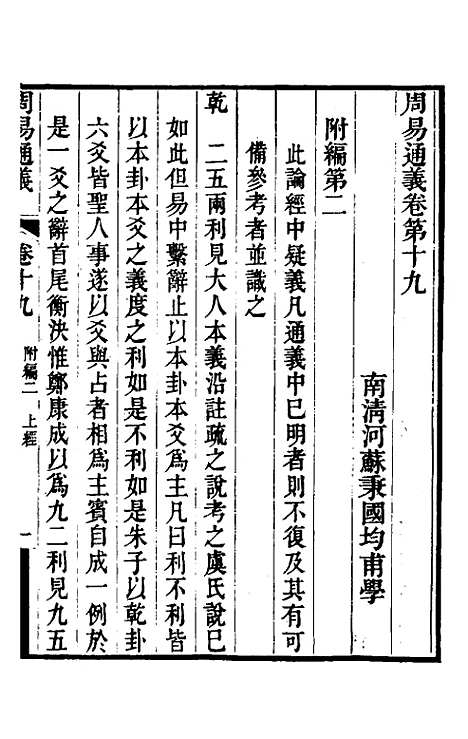 周易通義卷第十九
南淸河蘇秉國均甫學
附編第二
此論經中疑義凡通義中已明者則不復及其有可
備參考者並識之
乾　二五兩利見大人本義沿註疏之說考之虞氏說已
如此但易中繫辭止以本卦本爻爲主凡曰利不利皆
以本卦本爻之義度之利如是不利如是朱子以乾卦
六爻皆聖人事遂以爻與占者相爲主賓自成一例於
是一爻之辭首尾衡決惟鄭康成以爲九二利見九五
周易通義　卷十九　附編二　上經　一